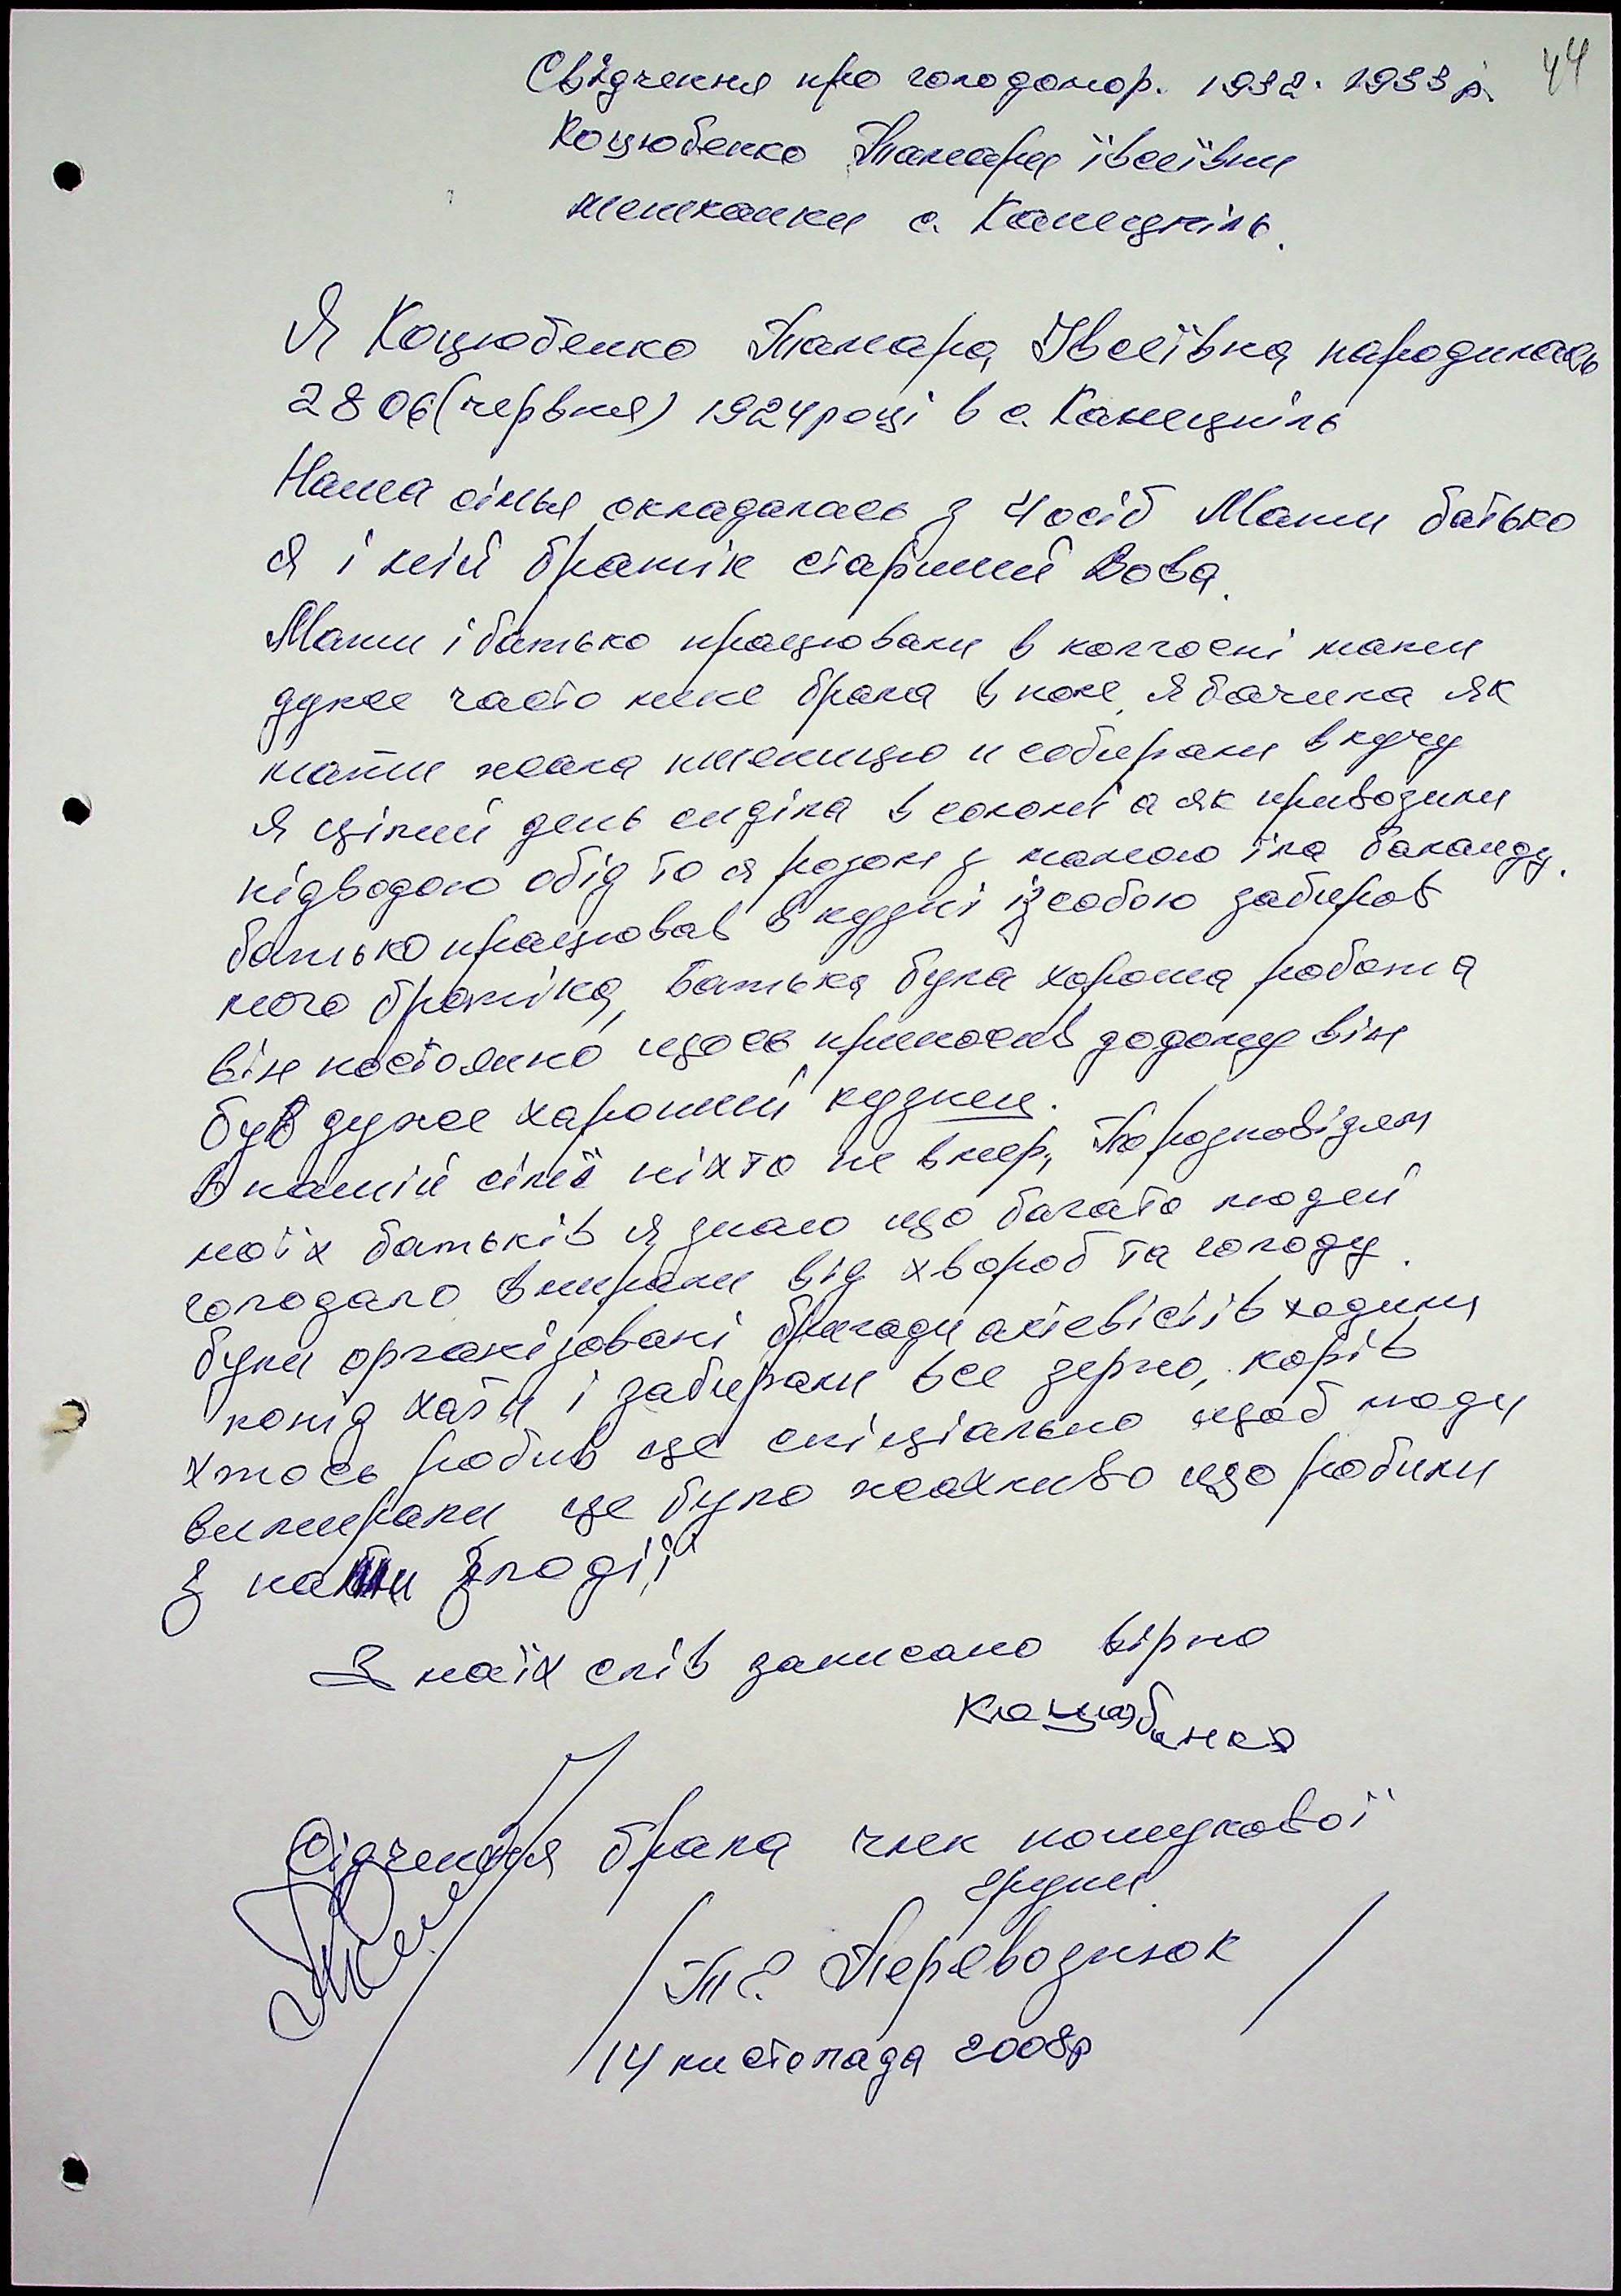 44
Свідчення про голодомор. 1932. 1933 р.
Коцюбенко Тамари Івсеївни
мешканки с. Канецпіль.
Я Коцюбенко Тамара Івсеївна народилась
28 06 (червня) 1924 році в с. Канецпіль
Наша сімья складалась з 4 осіб Мати батько
я і мій братік старший Вова.
Мати і батько працювали в колгоспі мати
дуже часто мене брала в поле, я бачила як
мати жала пшеницю и собирали в кучу
я цілий день сиділа в соломі а як привозили
підводою обід то я разом з мамою їла баланду.
батько працював в кузні із собою забирав
мого братіка, Батька була хороша робота
він постоянно щось приносив додому він
був дуже харошии кузнец.
В нашій сімї ніхто не вмер, По розповідям
моїх батьків я знаю що багато людей
голодало вмирали від хвороб та голоду.
були організовані бригади актевістів ходили
понід хати і забирали все зерно, корів
хтось робив це спіціально щоб люди
вимирали, це було жахливо що робили
з нами злодії
З моїх слів записано вірно
Кацюбенко
Свідчення брала член пошукової
групи
/Т Є. Переводзнюк/
14 листопада 2008р